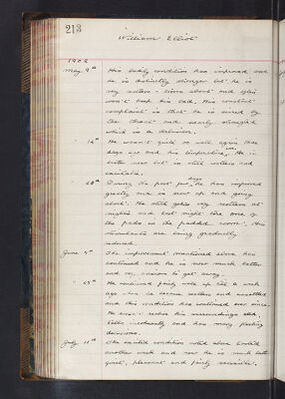 213
William Elliot
1902
May 9th His bodily condition has improved and
he is distinctly stronger but he is
very restless - moves about and often
won't keep his bed. His constant
complaint is that he is
by
the throat and nearly strangled
which is a delusion.
" 14th He wasn't quite so well again
days ago and had
He is
better now but is still restless and
" 28th During the past few days he has improved
greatly and is now up and going
about. He still gets very restless at
nights and last night tore one of
the pads in the padded room. His
are being gradually
reduced.
June 5th The improvement mentioned above has
continued and he is now much better
and
to get away.
" 25th He continued fairly well up till a week
ago when he became restless and unsettled
and this condition has continued ever since.
He
his surroundings and
talks
and has many fleeting
delusions.
July 11th The excited condition noted above lasted
another week and now he is much better
quiet, pleasant and fairly sensible.